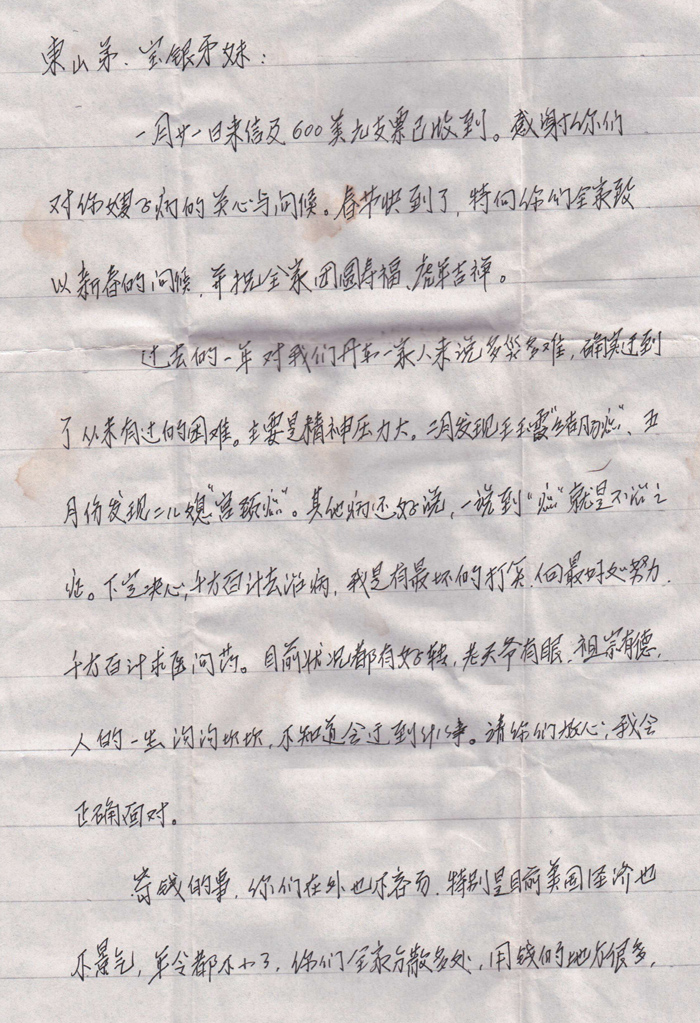 東山弟、宝银弟妹：
一月廿一日来信及600美元支票已收到。感谢你们
对你嫂子病的关心与问候。春节快到了，特向你们全家致
以新春的问候，并祝全家团圆幸福、虎年吉祥。
过去的一年对我们丹东一家人来说多灾多难，确实过到
了从来有过的困难。主要是精神压力大。二月发现王玉霞“结肠癌”、五
月份发现二儿媳“宫颈癌”。其他病还好说，一说到“癌”就是不治之
症。下定决心，千方百计去治病，我是有最坏的打算，向最好处努力.
千方百计求医问药。目前状况都有好转，老天爷有眼，祖宗有德，
人的一生沟沟坎坎，不知道会过到什么事。请你们放心，我会
正确面对。
寄钱的事，你们在外也不容易，特别是目前美国经济也
不景气，年令都不小了，你们全家分散多处，用钱的地方很多，